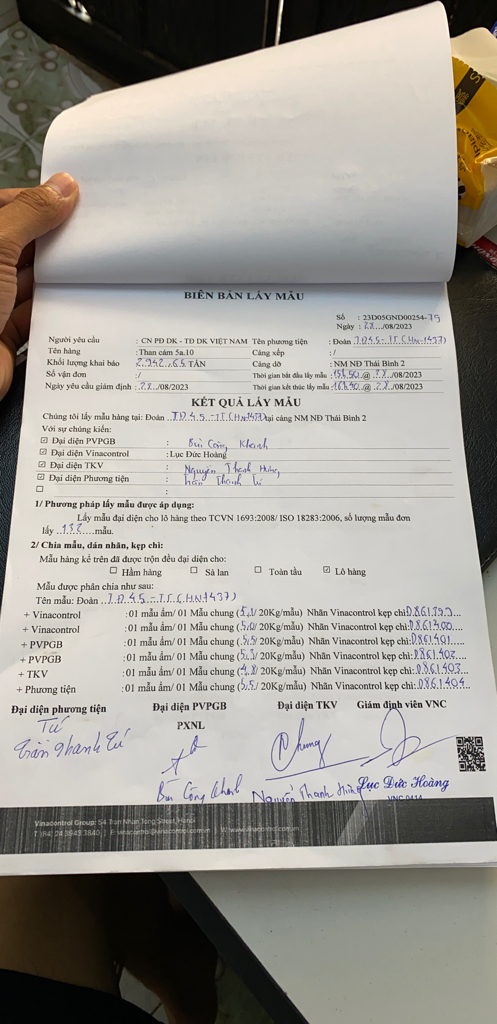 BIÊN BẢN LẤY MẪU
Số : 23D05GND00254-79
Ngày : 28./08/2023
Người yêu cầu : CN PĐ DK - TĐ DK VIỆT NAM Tên phương tiện : Đoàn TD45-TT(HN1437)
Tên hàng : Than cám 5a.10 Cảng xếp : /
Khối lượng khai báo : 2.942,65 TẤN Cảng dỡ : NM NĐ Thái Bình 2
Số vận đơn : / Thời gian bắt đầu lấy mẫu : @ 28/08/2023
Ngày yêu cầu giám định : 28/08/2023 Thời gian kết thúc lấy mẫu : @ 28/08/2023
KẾT QUẢ LẤY MẪU
Chúng tôi lấy mẫu hàng tại: Đoàn TD45-TT(HN1437) tại cảng NM NĐ Thái Bình 2
Với sự chứng kiến:
☑ Đại diện PVPGB : Bùi Công Khanh
☑ Đại diện Vinacontrol : Lục Đức Hoàng
☑ Đại diện TKV : Nguyễn Thanh Hưng
☑ Đại diện Phương tiện : Trần Thanh Tú
☐ :
1/ Phương pháp lấy mẫu được áp dụng:
Lấy mẫu đại diện cho lô hàng theo TCVN 1693:2008/ ISO 18283:2006, số lượng mẫu đơn
lấy 132 mẫu.
2/ Chia mẫu, dán nhãn, kẹp chì:
Mẫu hàng kể trên đã được trộn đều đại diện cho:
☐ Hầm hàng ☐ Sà lan ☐ Toàn tàu ☑ Lô hàng
Mẫu được phân chia như sau:
Tên mẫu: Đoàn TD45-TT(HN1437)
+ Vinacontrol :01 mẫu ẩm/ 01 Mẫu chung (5,1/ 20Kg/mẫu) Nhãn Vinacontrol kẹp chì: 0861399
+ Vinacontrol :01 mẫu ẩm/ 01 Mẫu chung (5,0/ 20Kg/mẫu) Nhãn Vinacontrol kẹp chì: 0861400
+ PVPGB :01 mẫu ẩm/ 01 Mẫu chung (5,5/ 20Kg/mẫu) Nhãn Vinacontrol kẹp chì: 0861401
+ PVPGB :01 mẫu ẩm/ 01 Mẫu chung (5,3/ 20Kg/mẫu) Nhãn Vinacontrol kẹp chì: 0861402
+ TKV :01 mẫu ẩm/ 01 Mẫu chung (4,8/ 20Kg/mẫu) Nhãn Vinacontrol kẹp chì: 0861403
+ Phương tiện :01 mẫu ẩm/ 01 Mẫu chung (5,5/ 20Kg/mẫu) Nhãn Vinacontrol kẹp chì: 0861404
Đại diện phương tiện Đại diện PVPGB Đại diện TKV Giám định viên VNC
PXNL
Tú
Trần Thanh Tú
Bùi Công Khanh Nguyễn Thanh Hưng Lục Đức Hoàng
VNC 0414
Vinacontrol Group: 54 Tran Nhan Tong Street, Hanoi
T: (84) 24 3943 3840 | E: vinacontrol@vinacontrol.com.vn | W: www.vinacontrol.com.vn